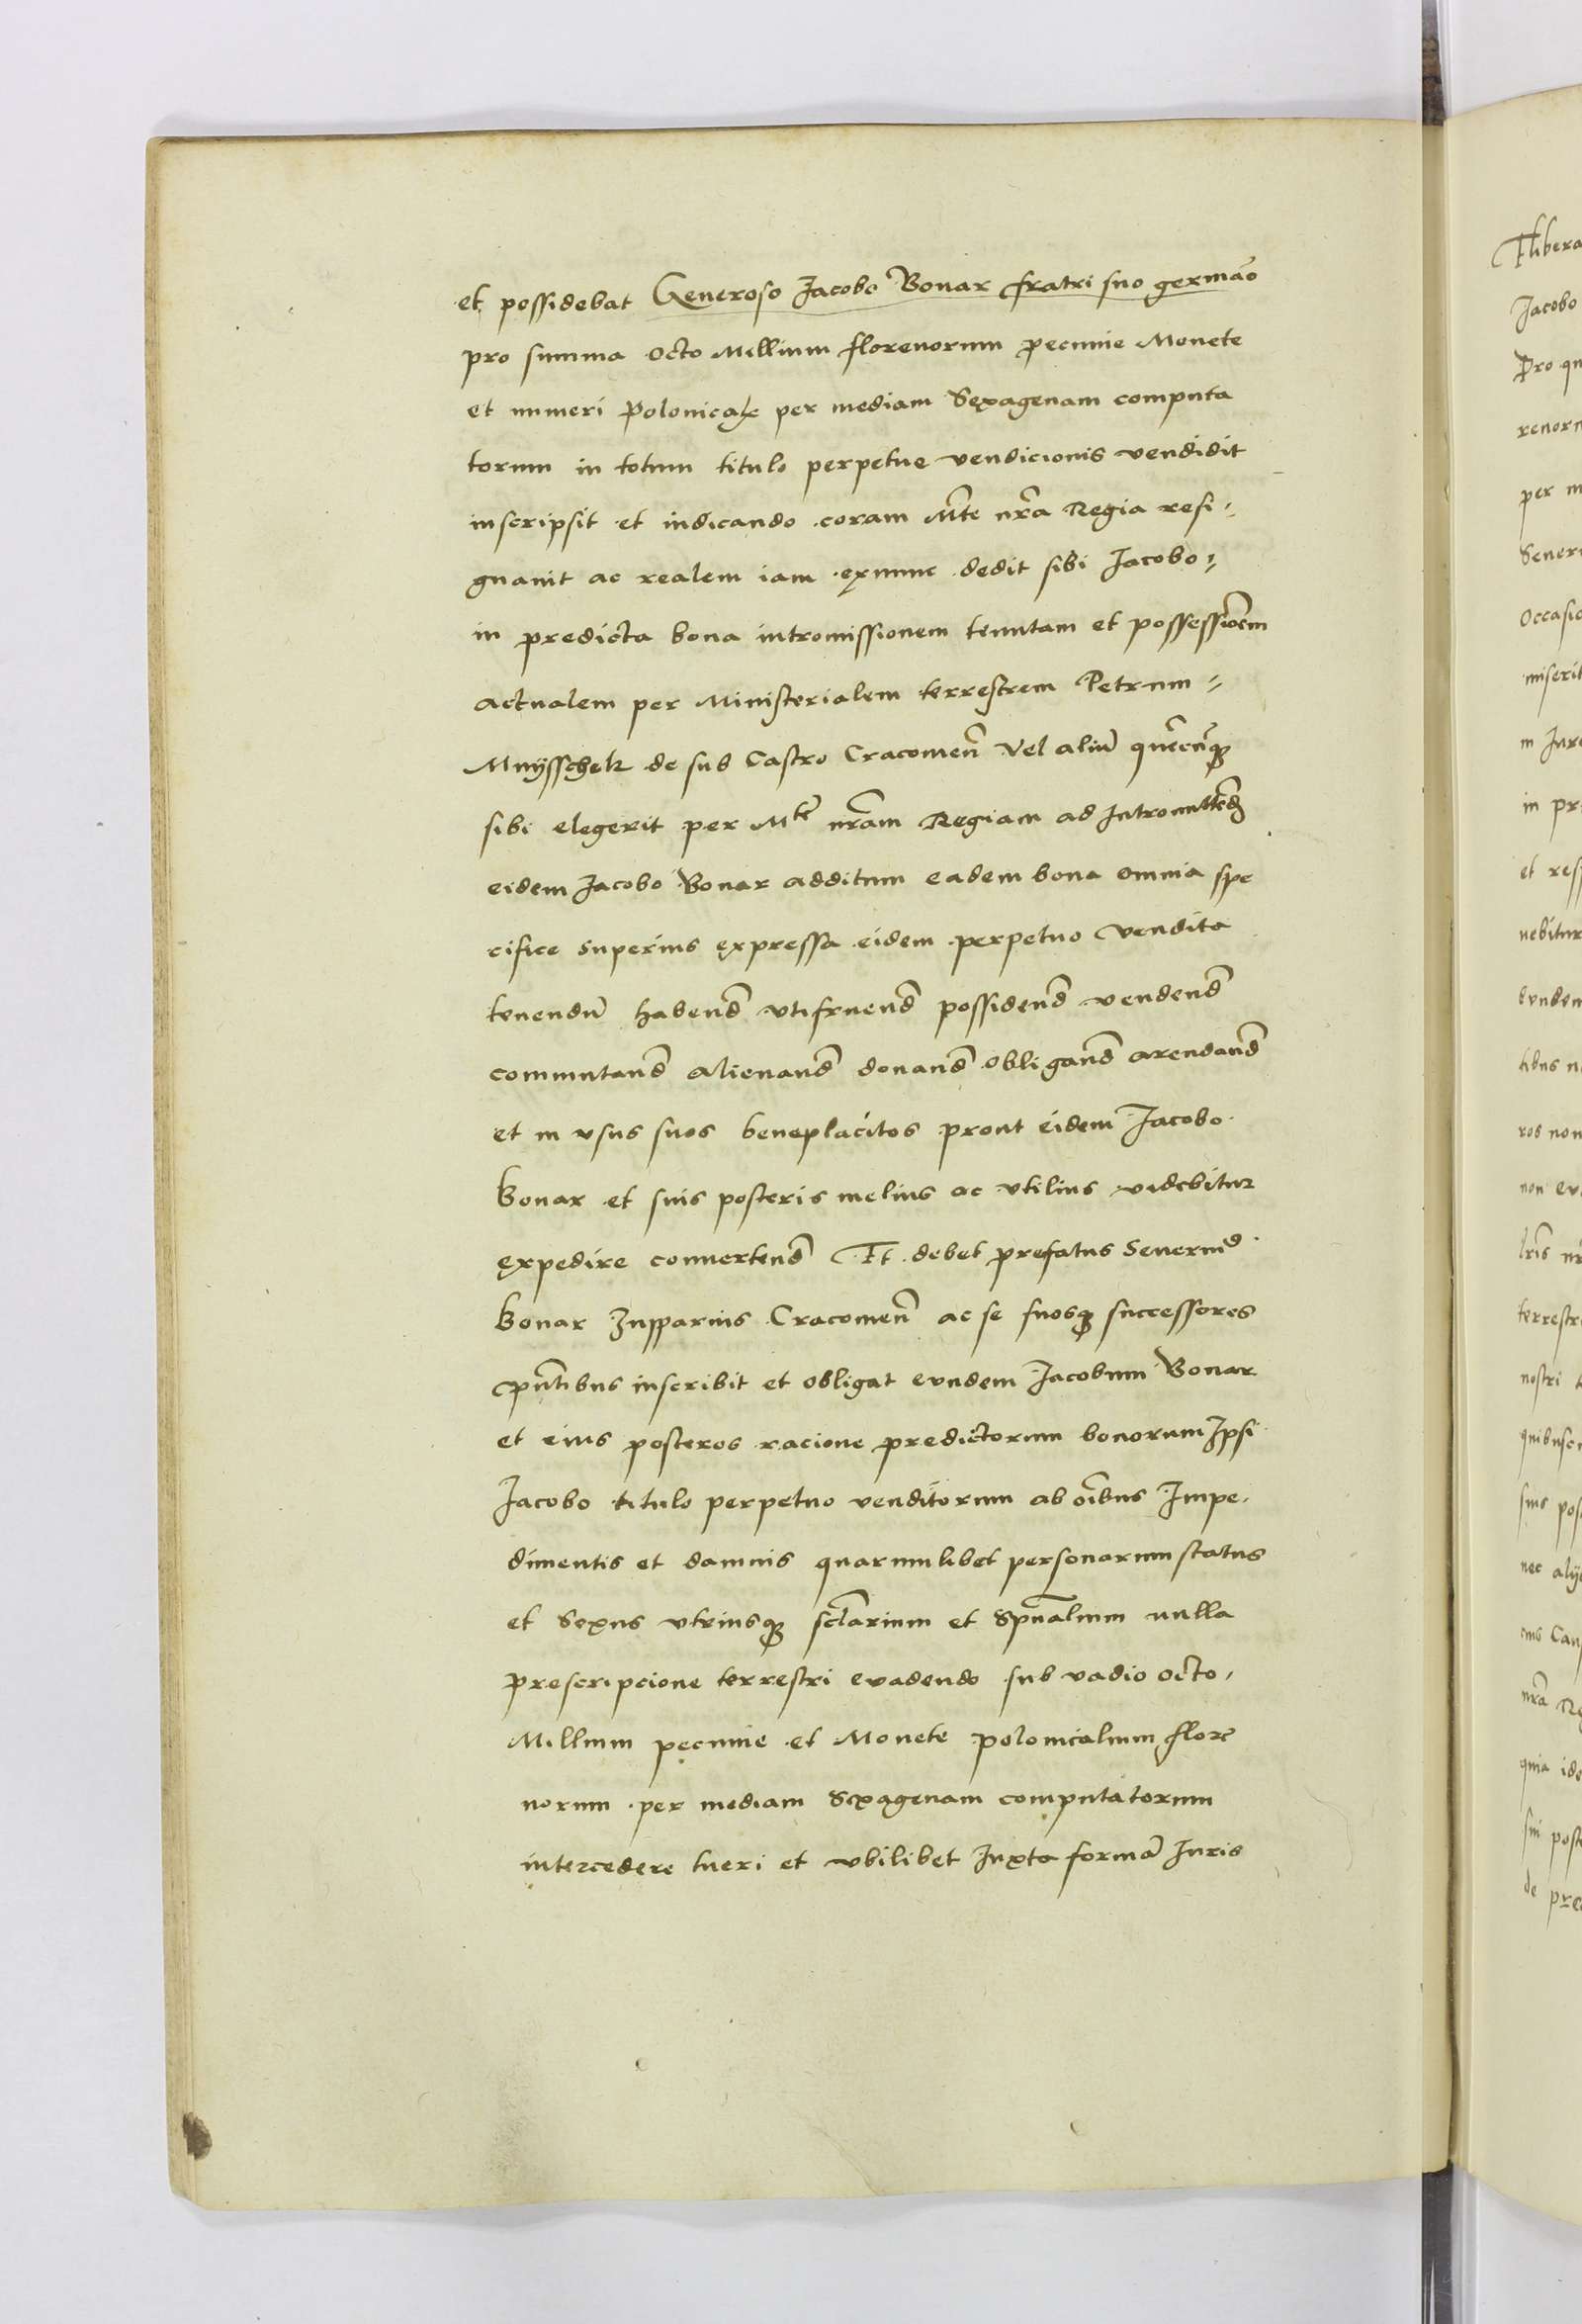 et possidebat Generoso Jacobo Bonar fratri suo germāo
pro summa octo Millium florenorum pecunie Monete
et numeri Polonical per mediam Sexagenam computa
torum in totum titulo perpetue vendicionis vendidit
inscripsit et indicando coram Mte nrā Regia resi-
gnauit ac realem iam exnunc dedit sibi Jacobo
in predicta bona intromissionem tenutam et possessiōem
actualem per Ministerialem terrestrem Petrum
Muÿsschek de sub Castro Cracouieñ vel aliū quēcūq;
sibi elegerit per Mtē nrām Regiam ad Intromittēd
eidem Jacobo Bonar additum eadem bona omnia spe
cifice superius expressa eidem perpetuo vendita
tenendū habend vtifruend possidend vendend
commutand alienand donand obligand arendand
et in vsus suos beneplacitos prout eidem Jacobo
Bonar et suis posteris melius ac vtilius videbitur
expedire conuertend Et debet prefatus Seuerin9
Bonar Zupparius Cracouieñ ac se suosq; successores
pñtibus inscribit et obligat eundem Jacobum Bonar
et eius posteros racione predictorum bonorum Ipsi
Jacobo titulo perpetuo venditorum ab oībus Impe-
dimentis et damnis quarumlibet personarum status
et Sexus vtriusq; sclārium et Spūalium nulla
prescripcione terrestri euadendo sub vadio octo
Millium pecunie et Monete polonicalium flore
norum per mediam Sexagenam computatorum
intercedere tueri et vbilibet Juxta formā Juris
Jacobo
Pro qu
renor
per m
Seueri
occasio
miserit
in Jure
in pr
et res
nebitur
eundem
tibus n
ros non
non eu
lrīs nr
terrestr
nostri
quibusc
suis pos
nec alij
nrā Re
quia ide
sui post
de pre